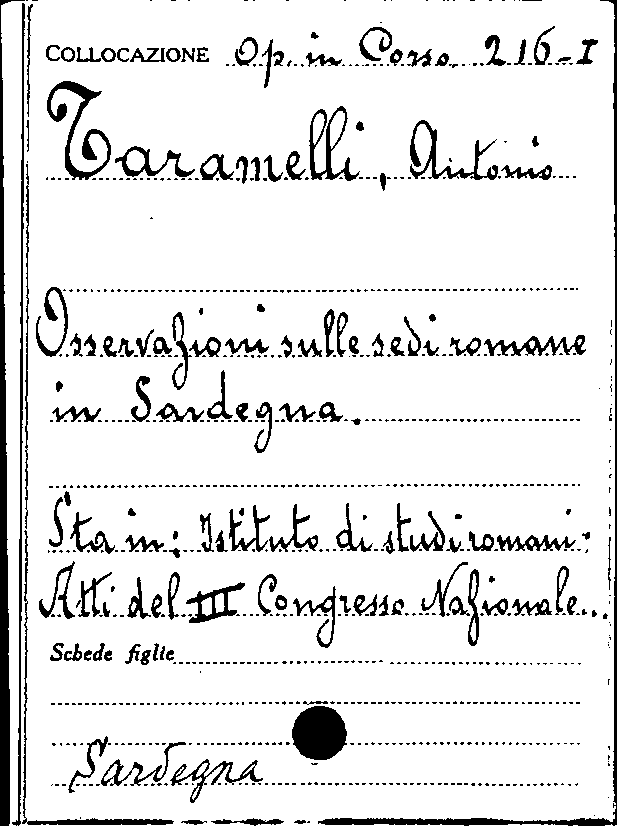 COLLOCAZIONE Op. in Corso 216-I
Taramelli, Antonio
Osservazioni sulle sedi romane
in Sardegna.
Sta in: Istituto di studi romani:
Atti del III Congresso Nazionale...
Schede figlie
Sardegna